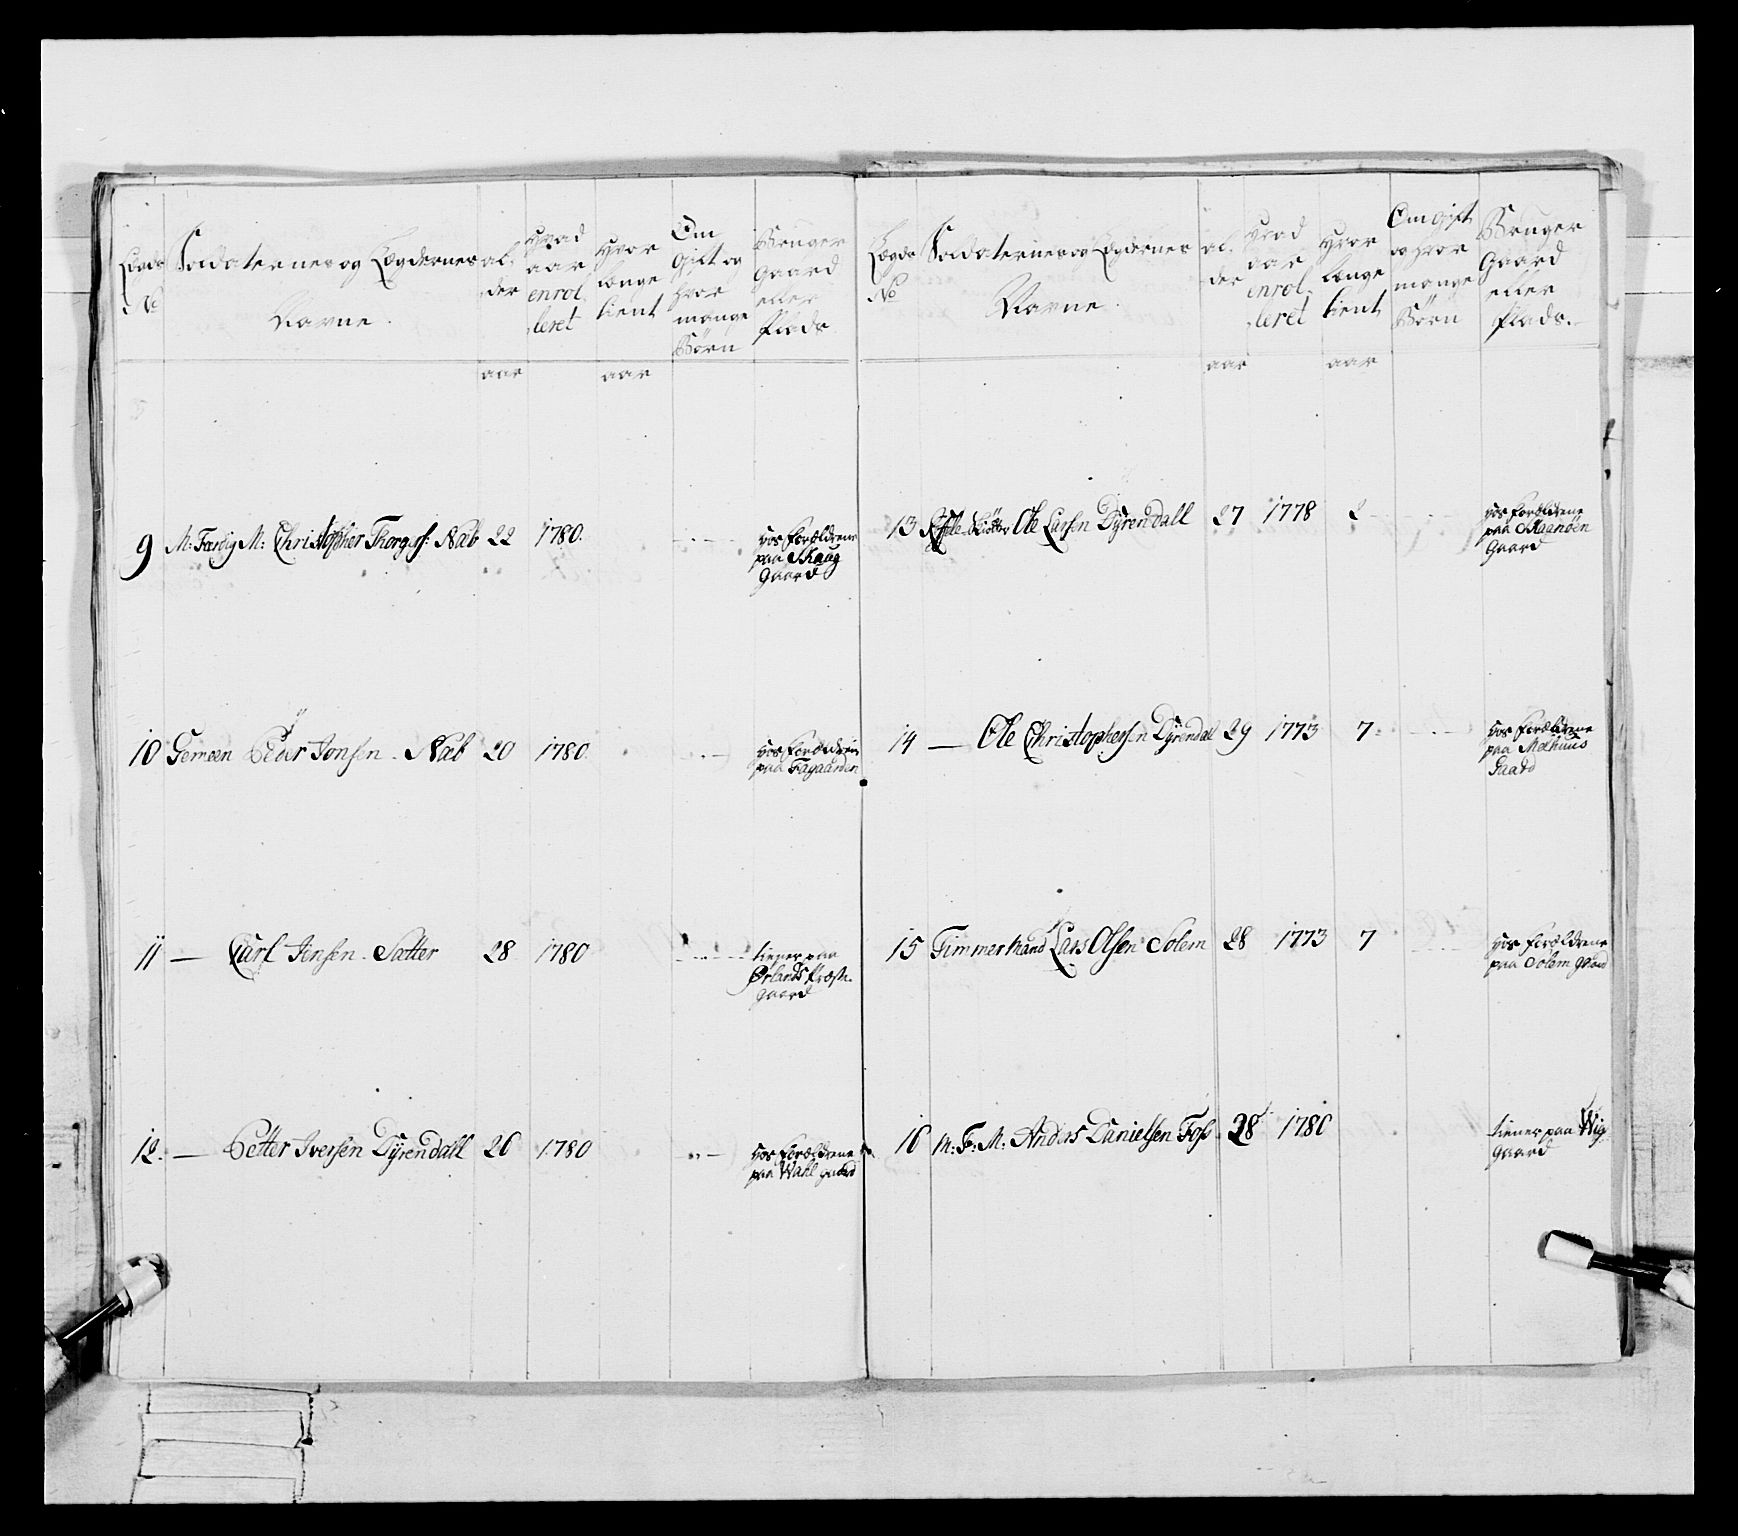 Lægds No
Soldaternes og Lægdernes Navne.
al- der
Hvad aar enrol- leret
Hvor længe tient
Om Gift og hvor mange Børn
Bruger Gaard eller Plads
aar
aar
9 M: Færdig M: Christopher Thorgrs: Næb 22 1780.
hos Forældrene
paa Skaug
Gaard
10 Gemeen Peder Jonsen. Næb 20 1780
hos Forældrene
paa Fagaarden
11 — Carl Jensen. Sætter 28 1780
tiener paa
Ørlands Præste
gaard
12. — Petter Iversen Dÿrendall 26 1780
hos Forældrene
paa Wahl gaard
Lægds No
Soldaternes og Lægdernes Navne.
al- der
Hvad aar enrol- leret
Hvor længe tient
Om gift og hvor mange Børn
Bruger Gaard eller Plads.
aar
aar
13 Ole Larsen Dÿrendall 27 1778 2
hos Forældrene
paa
Gaard
14 — Ole Christophersen Dÿrendal 29 1773 7
hos Forældrene
paa Melhuus
Gaard
15 Timmermand Lars Olsen Solem 28 1773 7
hos Forældrene
paa Solem gaard
16 M: F: M: Anders Danielsen Foss 28 1780
tiener paa Wig
gaard